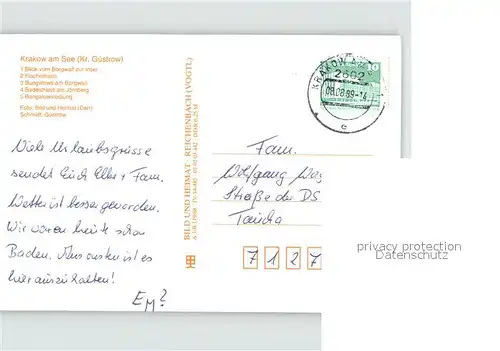 Krakow am See (Kr. Güstrow)
1 Blick vom Borgwall zur Insel
2 Fischerhaus
3 Bungalows am Borgwall
4 Badestrand am Jörnberg
5 Rohrgansiedlung
Foto: Bild und Heimat (Darr)
Schmidt, Güstrow
Viele Urlaubsgrüsse
sendet Euch Elke + Fam.
Wetter ist besser geworden.
Wir waren heute schon
Baden. Ansonsten ist es
hier auszuhalten!
EM?
BILD UND HEIMAT REICHENBACH (VOGTL)
KRAKOW AM
2602
08.08.89-14
e
Fam.
Wolfgang
Straße der DS
Taucha
7 1 2 7
privacy protection
oldthing.de